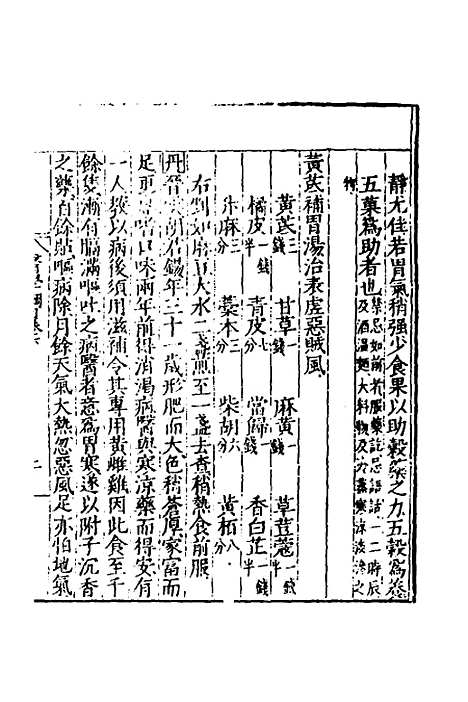 靜尤佳若胃氣稍強少食果以助穀藥之力五穀為養
五菓為助者也禁忌如前若服藥訖忌語話一二時辰及酒濕麵大料物及
黃芪補胃湯治表虛惡賊風
黃芪三錢 甘草一錢 麻黃一錢 草荳蔻一錢
橘皮一錢半 青皮七分 當歸一錢 香白芷一錢半
升麻三分 藁本三分 柴胡六分 黃栢八分
右剉如麻豆大水二盞煎至一盞去查稍熱食前服
丹谿 胡君錫年三十一歲形肥而大色稍蒼厚家富而
足 口味兩年前得消渴病醫與寒涼藥而得安有
一人教以病後須用滋補令其專用黃雌雞因此食至千
餘隻漸有膈滿嘔吐之病醫者意為胃寒遂以附子沉香
之藥百餘貼嘔病除月餘天氣大熱忽惡風足亦怕地氣